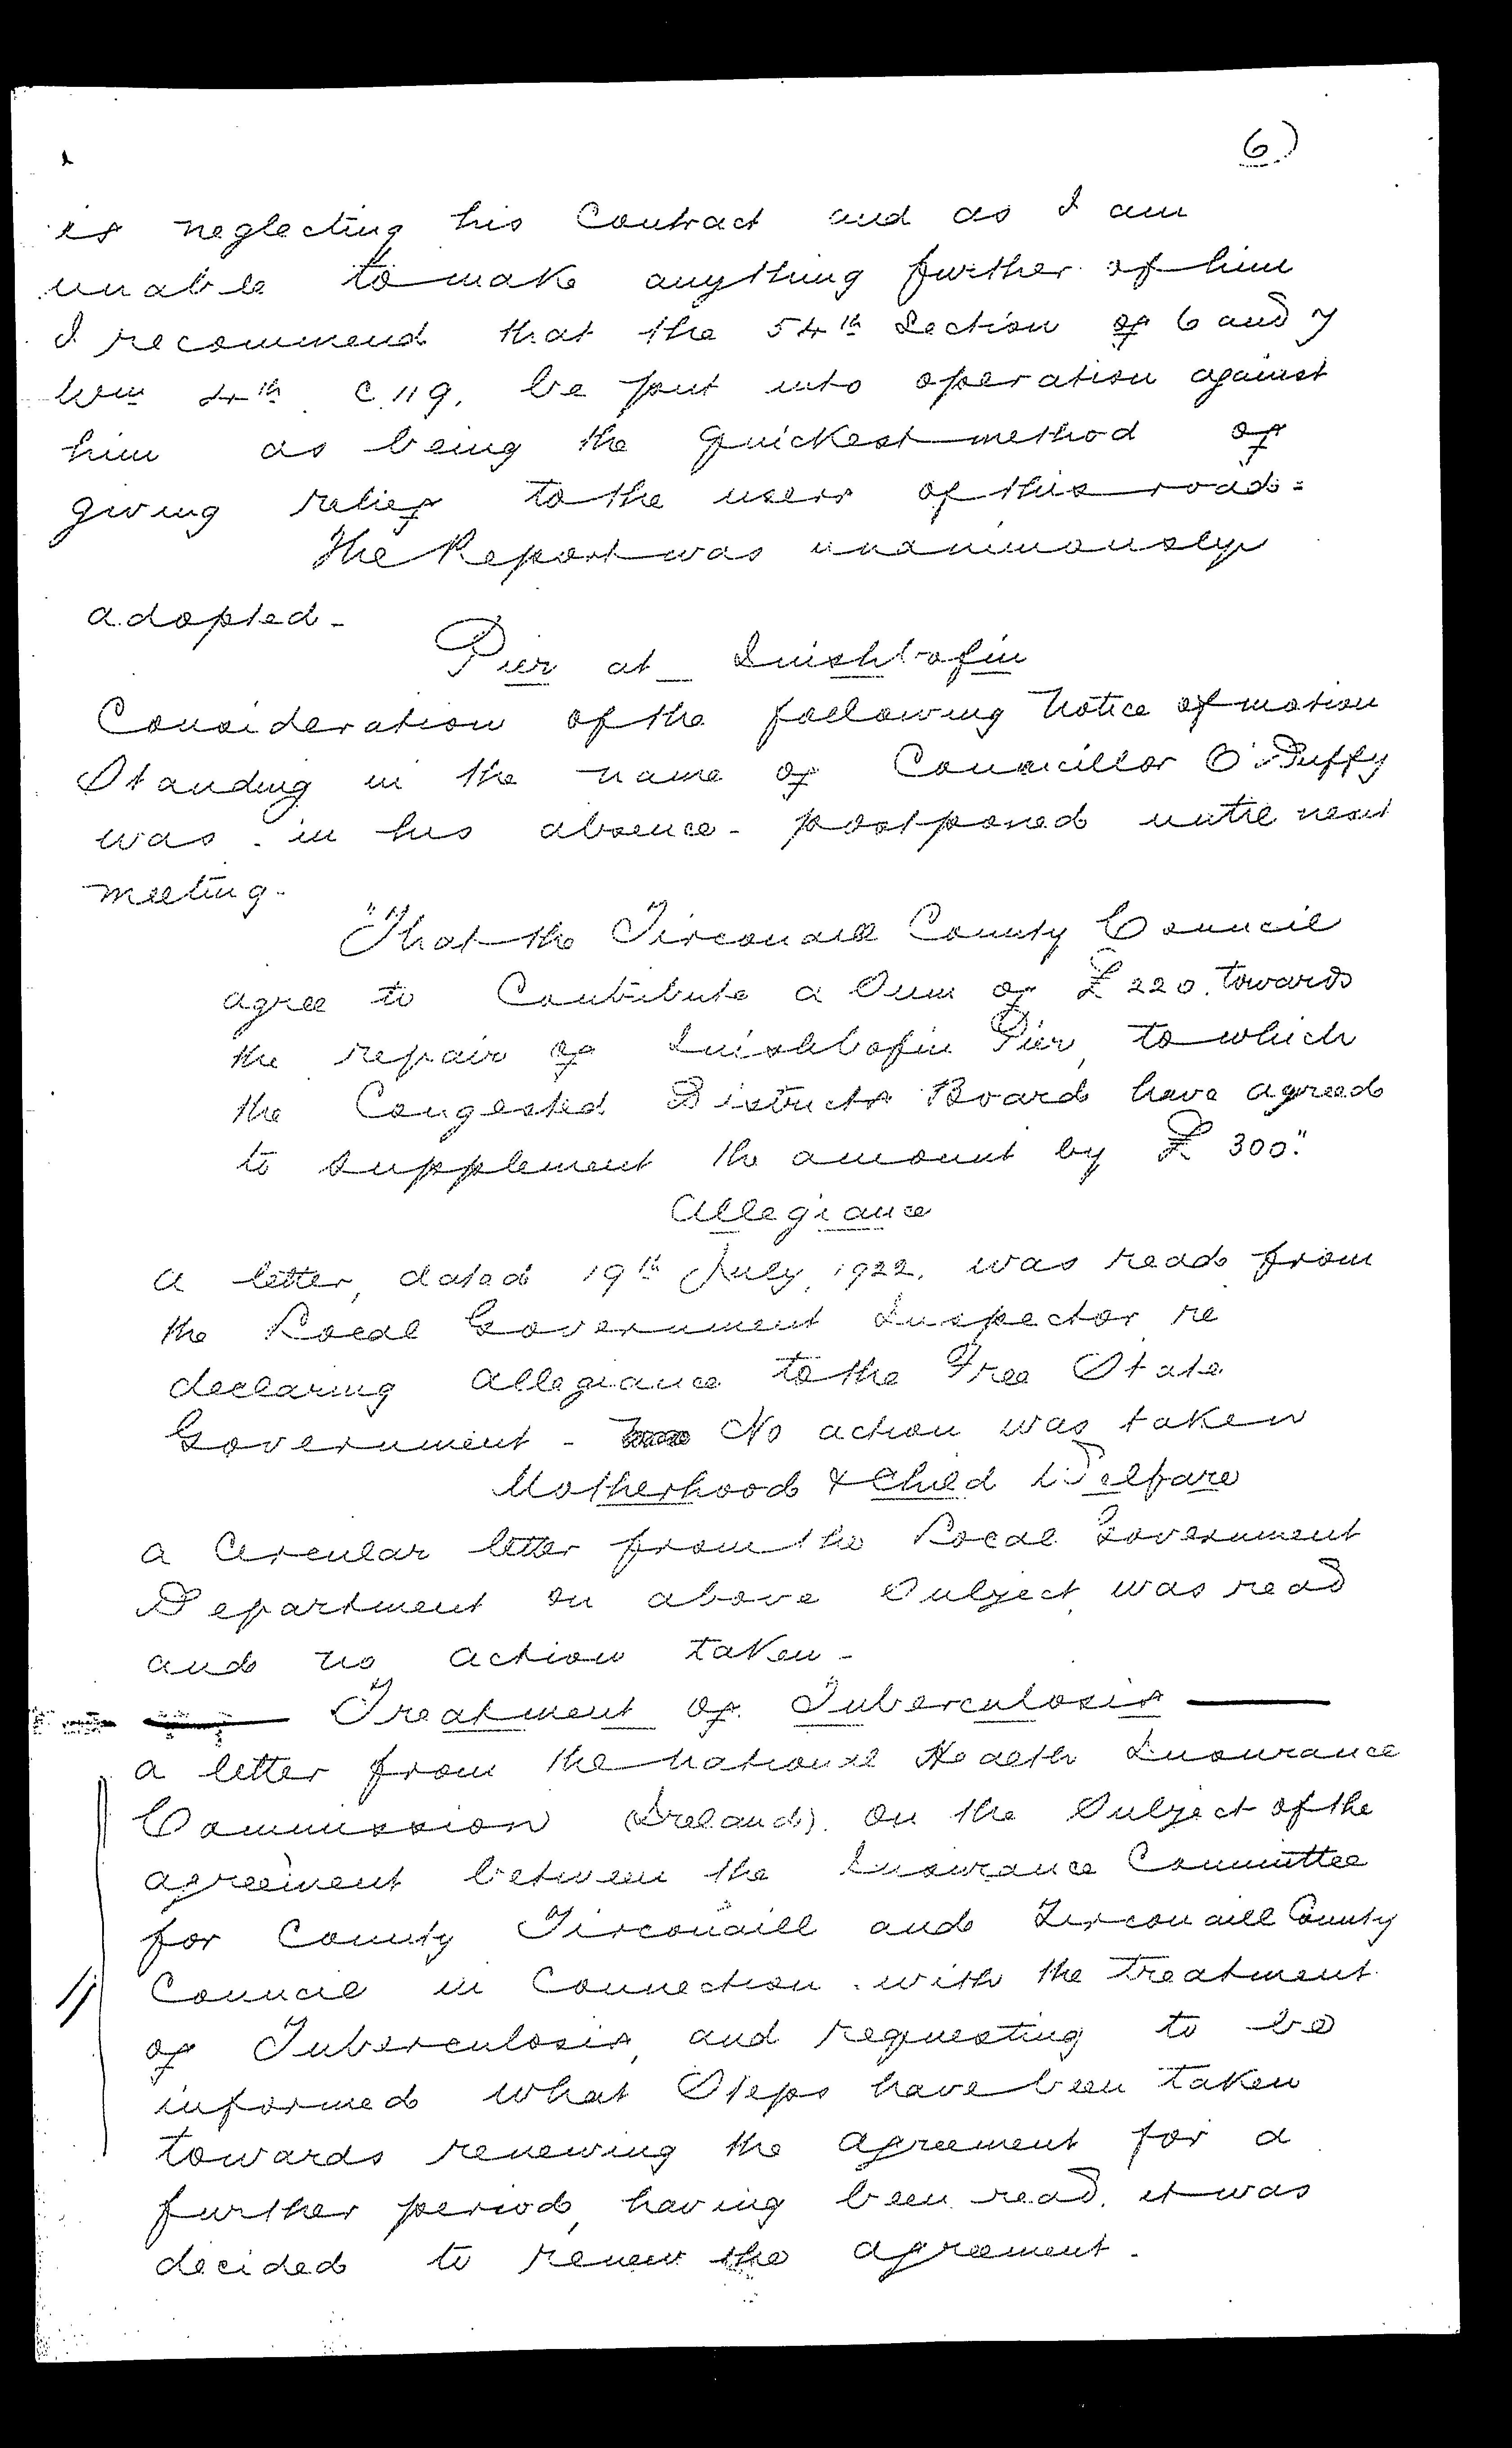 6)
is neglecting his Contract and as I am
unable to make anything further of him
I recommend that the 54th Section of 6 and 7
Wm 4th C 119. be put into operation against
him as being the quickest method of
giving relief to the users of this road =
The Report was unanimously
adopted -
Pier at Inishbofin
Consideration of the following Notice of motion
Standing in the name of Councillor O'Duffy
was - in his absence - postponed until next
meeting -
"That the Tirconaill County Council
agree to Contribute a Sum of £220. towards
the repair of Inishbofin Pier, to which
the Congested Districts Board have agreed
to supplement the amount by £300."
Allegiance
A letter, dated 19th July, 1922, was read from
the Local Government Inspector re
declaring allegiance to the Free State
Government - No action was taken
Motherhood & Child Welfare
A Circular letter from the Local Government
Department on above Subject, was read
and no action taken -
Treatment of Tuberculosis
A letter from the National Health Insurance
Commission (Ireland). on the Subject of the
agreement between the Insurance Committee
for County Tirconaill and Tirconaill County
Council in Connection with the treatment
of Tuberculosis, and requesting to be
informed what Steps have been taken
towards renewing the agreement for a
further period, having been read, it was
decided to renew the agreement -